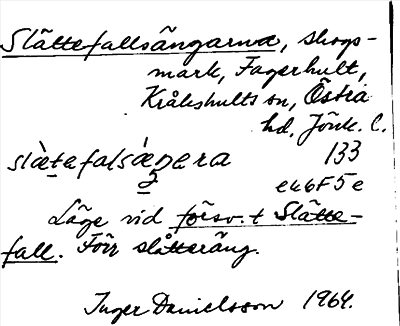 Slättefallsängarna, skogs-
mark, Fagerhult,
Kråkshults sn, Östra
hd. Jönk. l.
slätefalsäŋera 133
eu6F5e
Läge vid försv. t Slätte-
fall. Förr slåtteräng.
Inger Danielsson 1964.